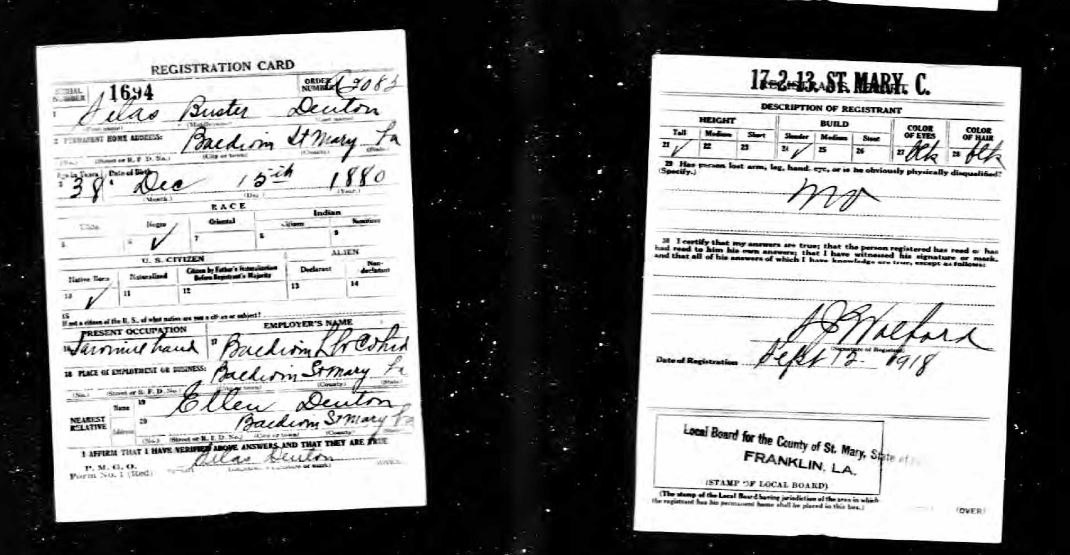 REGISTRATION CARD
SERIAL NUMBER 1694 ORDER NUMBER A2083
1 Silas Buster Denton
(First name) (Middle name) (Last name)
2 PERMANENT HOME ADDRESS: Baldwin St Mary La
(No.) (Street or R. F. D. No.) (City or town) (County) (State)
Age in Years Date of Birth
3 38 4 Dec 15th 1880
(Month.) (Day.) (Year.)
RACE
White Negro Oriental Indian
Citizen Noncitizen
5 6 ✓ 7 8 9
U. S. CITIZEN ALIEN
Native Born Naturalized Citizen by Father's Naturalization Before Registrant's Majority Declarant Non-declarant
10 ✓ 11 12 13 14
15
If not a citizen of the U. S., of what nation are you a citizen or subject?
PRESENT OCCUPATION EMPLOYER'S NAME
16 17 Baldwin Lbr Co
18 PLACE OF EMPLOYMENT OR BUSINESS: Baldwin St Mary La
(No.) (Street or R. F. D. No.) (City or town) (County) (State)
NEAREST RELATIVE Name 19 Ellen Denton
Address 20 Baldwin St Mary La
(No.) (Street or R. F. D. No.) (City or town) (County) (State)
I AFFIRM THAT I HAVE VERIFIED ABOVE ANSWERS AND THAT THEY ARE TRUE
P. M. G. O.
Form No. 1 (Red) Silas Denton (OVER)
17-2-13. ST. MARY. C.
REGISTRAR'S REPORT
DESCRIPTION OF REGISTRANT
HEIGHT BUILD COLOR OF EYES COLOR OF HAIR
Tall Medium Short Slender Medium Stout
21 ✓ 22 23 24 ✓ 25 26 27 blk 28 blk
29 Has person lost arm, leg, hand, eye, or is he obviously physically disqualified?
(Specify.)
no
30 I certify that my answers are true; that the person registered has read or has had read to him his own answers; that I have witnessed his signature or mark, and that all of his answers of which I have knowledge are true, except as follows:
(Signature of Registrar)
Date of Registration Sept 12 1918
Local Board for the County of St. Mary, State of
FRANKLIN, LA.
(STAMP OF LOCAL BOARD)
(The stamp of the Local Board having jurisdiction of the area in which the registrant has his permanent home shall be placed in this box.)
(OVER)